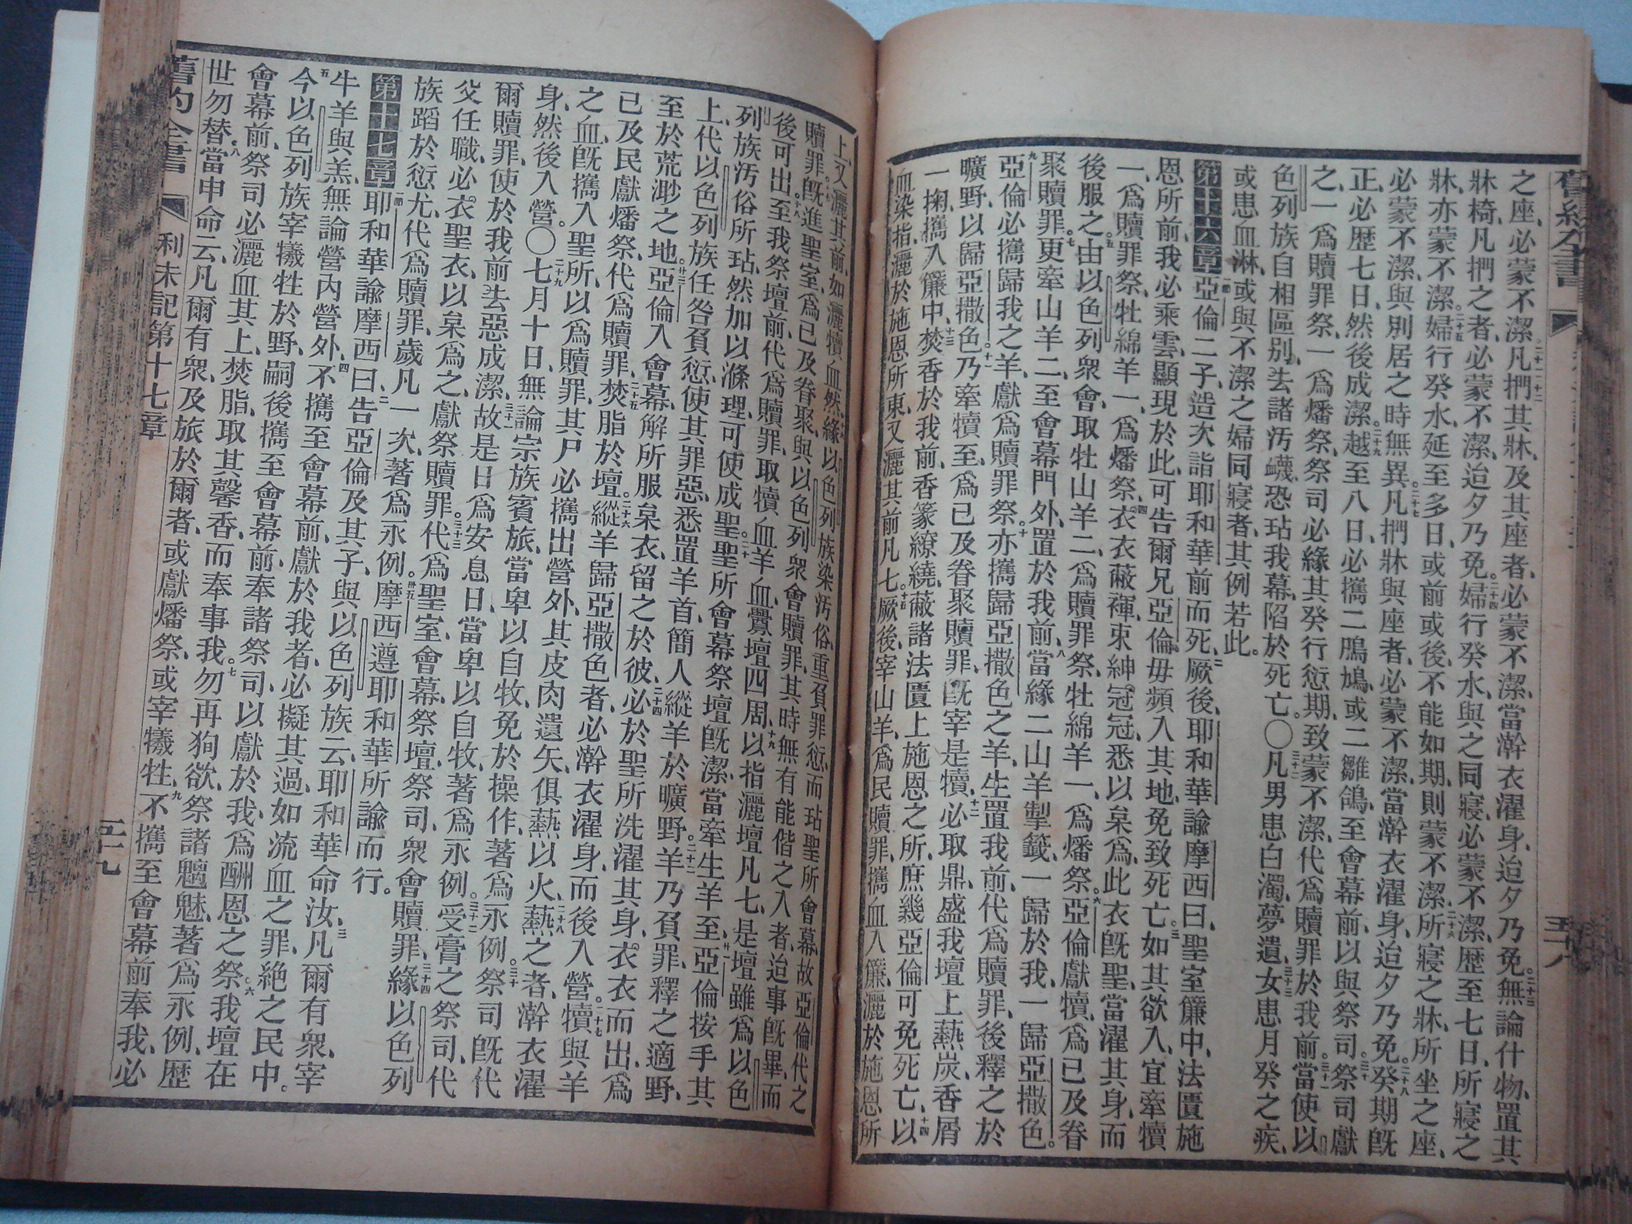 之座、必蒙不潔、凡捫其牀、及其座者、必蒙不潔、當澣衣濯身、迨夕乃免。無論什物、置其
牀椅、凡捫之者、必蒙不潔、迨夕乃免。婦行癸水、與之同寢、必蒙不潔、歷至七日、所寢之
牀、亦蒙不潔。婦行癸水、延至多日、或前或後、不能如期、則蒙不潔、所寢之牀、所坐之座、
必蒙不潔、與別居之時無異。凡捫牀與座者、必蒙不潔、當澣衣濯身、迨夕乃免。癸期旣
正、必歷七日、然後成潔。越至八日、必攜二鳲鳩、或二雛鴿、至會幕前、以與祭司。祭司獻
之、一爲贖罪祭、一爲燔祭、祭司必緣其癸行愆期、致蒙不潔、代爲贖罪於我前。當使以
色列族自相區別、去諸汚衊、恐玷我幕、陷於死亡。〇凡男患白濁、夢遺、女患月癸之疾、
或患血淋、或與不潔之婦同寢者、其例若此。
第十六章 亞倫二子造次詣耶和華前而死、厥後、耶和華諭摩西曰、聖室簾中、法匱施
恩所前、我必乘雲、顯現於此、可告爾兄亞倫、毋頻入其地、免致死亡。如其欲入、宜牽犢
一、爲贖罪祭、牡綿羊一、爲燔祭。衣衣蔽褌、束紳、冠冠、悉以枲爲、此衣旣聖、當濯其身、而
後服之。由以色列衆會、取牡山羊二、爲贖罪祭、牡綿羊一、爲燔祭。亞倫獻犢、爲已及眷
聚贖罪。更牽山羊二、至會幕門外、置於我前。當緣二山羊掣籤、一歸於我、一歸亞撒色。
亞倫必攜歸我之羊、獻爲贖罪祭。亦攜歸亞撒色之羊、生置我前、代爲贖罪、後釋之於
曠野、以歸亞撒色。乃牽犢至、爲已及眷聚贖罪、旣宰是犢、必取鼎、盛我壇上爇炭、香屑
一掬、攜入簾中、焚香於我前、香篆繚繞、蔽諸法匱上施恩之所、庶幾亞倫可免死亡。以
血染指、灑於施恩所東、又灑其前、凡七。厥後、宰山羊、爲民贖罪、攜血入簾、灑於施恩所
上、又灑其前、如灑犢血然。緣以色列族染汚俗、重負罪愆、而玷聖所會幕、故亞倫代之
贖罪。旣進聖室、爲已及眷聚、與以色列衆會贖罪、其時無有能偕之入者、迨事旣畢、而
後可出。至我祭壇前、代爲贖罪、取犢血羊血、釁壇四周。以指灑壇凡七、是壇雖爲以色
列族汚俗所玷、然加以滌理、可使成聖。聖所會幕祭壇旣潔、當牽生羊至、亞倫按手其
上、代以色列族任咎負愆、使其罪惡悉置羊首、簡人縱羊於曠野。羊乃負罪、釋之適野、
至於荒渺之地。亞倫入會幕、解所服枲衣、留之於彼。必於聖所洗濯其身、衣衣而出、爲
已及民獻燔祭、代爲贖罪。焚脂於壇。縱羊歸亞撒色者、必澣衣濯身、而後入營。犢與羊
之血、旣攜入聖所、以爲贖罪、其尸必攜出營外、其皮肉遺矢、俱爇以火。爇之者、澣衣濯
身、然後入營。〇七月十日、無論宗族賓旅、當卑以自牧、免於操作、著爲永例。祭司旣代
爾贖罪、使於我前去惡成潔。故是日爲安息日、當卑以自牧、著爲永例。受膏之祭司、代
父任職、必衣聖衣、以枲爲之、獻祭贖罪。代爲聖室會幕、祭壇、祭司、衆會贖罪。緣以色列
族蹈於愆尤、代爲贖罪、歲凡一次、著爲永例。摩西遵耶和華所諭而行。
第十七章 耶和華諭摩西曰、告亞倫及其子、與以色列族云、耶和華命汝、凡爾有衆、宰
牛羊與羔、無論營內營外、不攜至會幕前、獻於我者、必擬其過、如流血之罪、絕之民中。
今以色列族宰犧牲於野、嗣後攜至會幕前、奉諸祭司、以獻於我、爲酬恩之祭。我壇在
會幕前、祭司必灑血其上、焚脂取其馨香、而奉事我、勿再狥欲、祭諸魑魅、著爲永例、歷
世勿替。當申命云、凡爾有衆、及旅於爾者、或獻燔祭、或宰犧牲、不攜至會幕前奉我、必
舊約全書
利未記第十七章
五十九
五十八